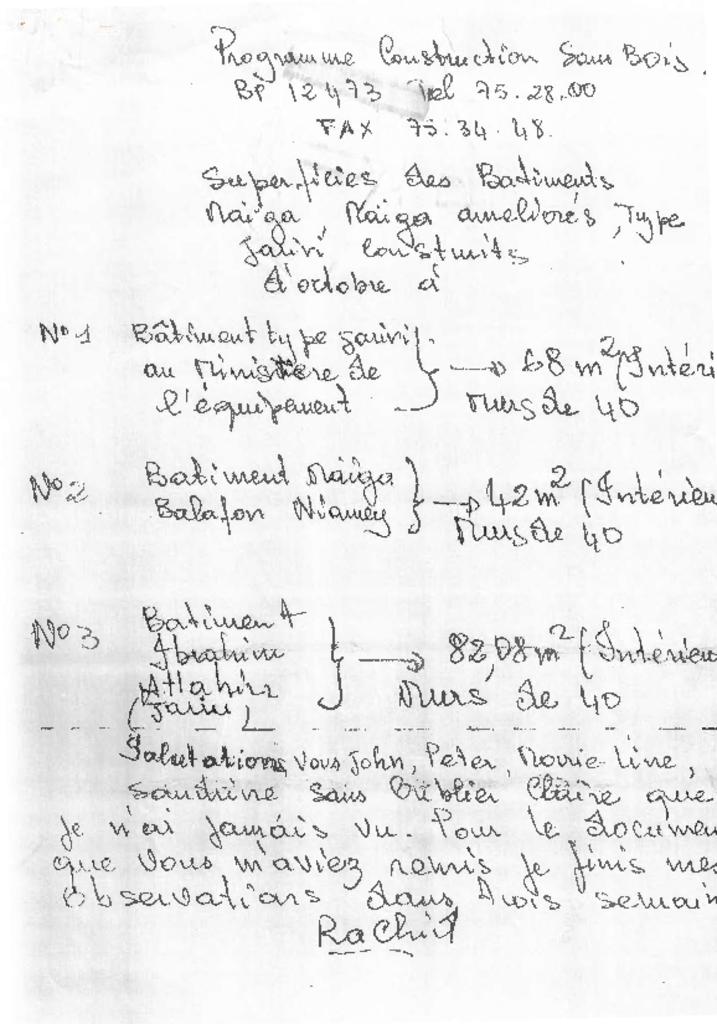 Programme Construction Sans Bois.
BP 12473 Tel 75.28.00
FAX 75.34.48.
Superficies des Batiments
Maïga améliorés, Type
construits
d'octobre à
N°1 Bâtiment type
au Ministère de
l'équipement
→ 68 m² (Intéri
Murs de 40
N°2 Batiment
Balafon Niamey
→ 42 m² (Intérieu
Murs de 40
N°3 Batiment
Ibrahim
Attahir
→ 82,08 m² (Intérieu
Murs de 40
Salutations, vous John, Peter, Marie-Line,
Sandrine Sans Oublier Claire que
je n'ai jamais vu. Pour le documen
que vous m'aviez remis je finis mes
observations dans trois semain
Rachid